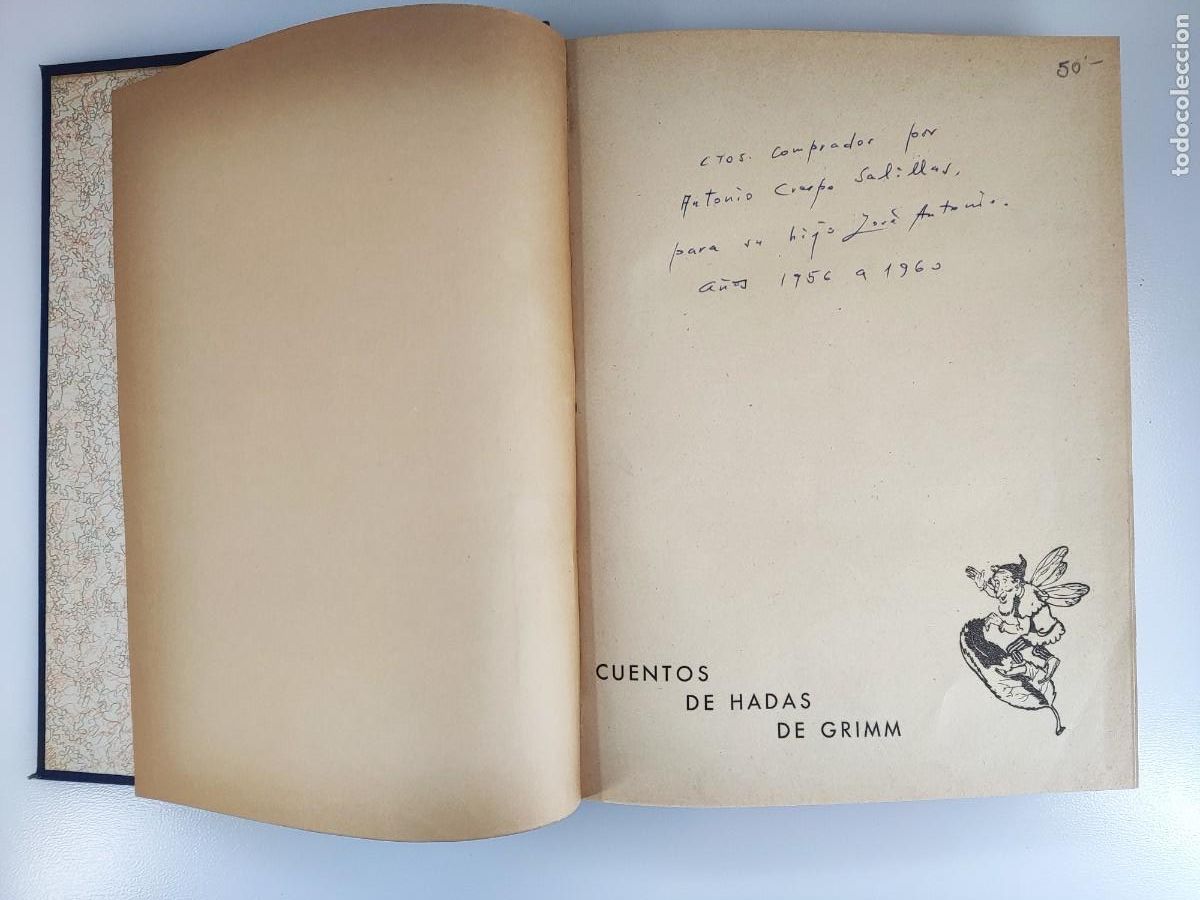 50'-
CTOS. Comprador por
Antonio Crespo Salillas,
para su hijo José Antonio.
años 1956 a 1960
CUENTOS
DE HADAS
DE GRIMM
todocoleccion